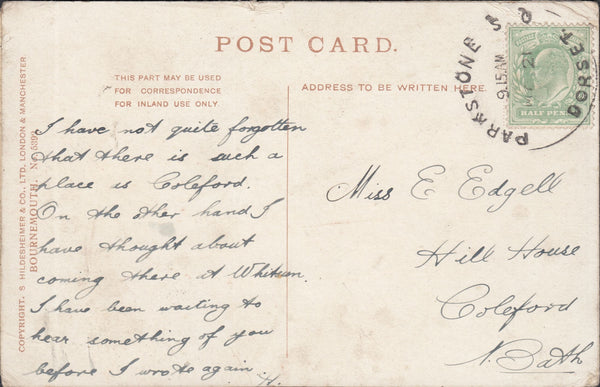 POST CARD.
THIS PART MAY BE USED
FOR CORRESPONDENCE
FOR INLAND USE ONLY.
ADDRESS TO BE WRITTEN HERE.
COPYRIGHT. S HILDESHEIMER & CO., LTD. LONDON & MANCHESTER.
BOURNEMOUTH. No.
I have not quite forgotten
that there is such a
place is Coleford.
On the other hand I
have thought about
coming there at Whitsun.
I have been waiting to
hear something of you
before I wrote again.
H.
Miss E Edgell
Hill House
Coleford
N. Bath
PARKSTONE S.O.
DORSET.
9.15 AM
21
HALF PEN